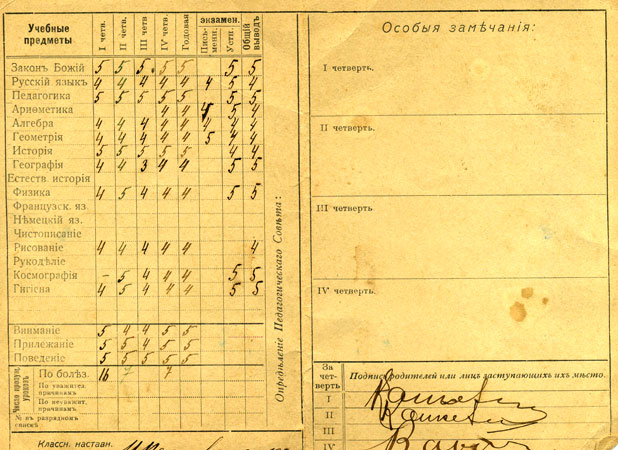 Учебные предметы
I четв.
II четв.
III четв
IV четв.
Годовая
экзамен.
Письменн.
Устн.
Общій выводъ
Законъ Божій 5 5 5 5 5 5 5
Русскій языкъ 4 4 4 4 4 4 5 4
Педагогика 5 5 5 5 5 5 5
Ариѳметика 4 4 5 5 4
Алгебра 4 4 4 4 4 4 4 4
Геометрія 4 4 4 4 4 5 4 4
Исторія 5 5 5 5 5 4 4
Географія 4 4 3 4 4 5 5
Естеств. исторія
Физика 4 5 4 4 4 5 5
Французск. яз.
Нѣмецкій яз.
Чистописаніе
Рисованіе 4 4 4 4 4 4
Рукодѣліе
Космографія – 5 4 4 4 5 5
Гигіена 4 5 4 4 4 5 5
Вниманіе 5 4 4 5 5
Прилежаніе 5 5 4 5 5
Поведеніе 5 5 5 5 5
Число пропущ. уроковъ
По болѣз. 16 7 7
По уважит. причинамъ
По неуважит. причинамъ
№ въ разрядном спискѣ
Классн. наставн.
Опредѣленіе Педагогическаго Совѣта:
Особыя замѣчанія:
I четверть.
II четверть.
III четверть
IV четверть.
За четверть
Подпись родителей или лицъ заступающихъ ихъ мѣсто.
I
II
III
IV